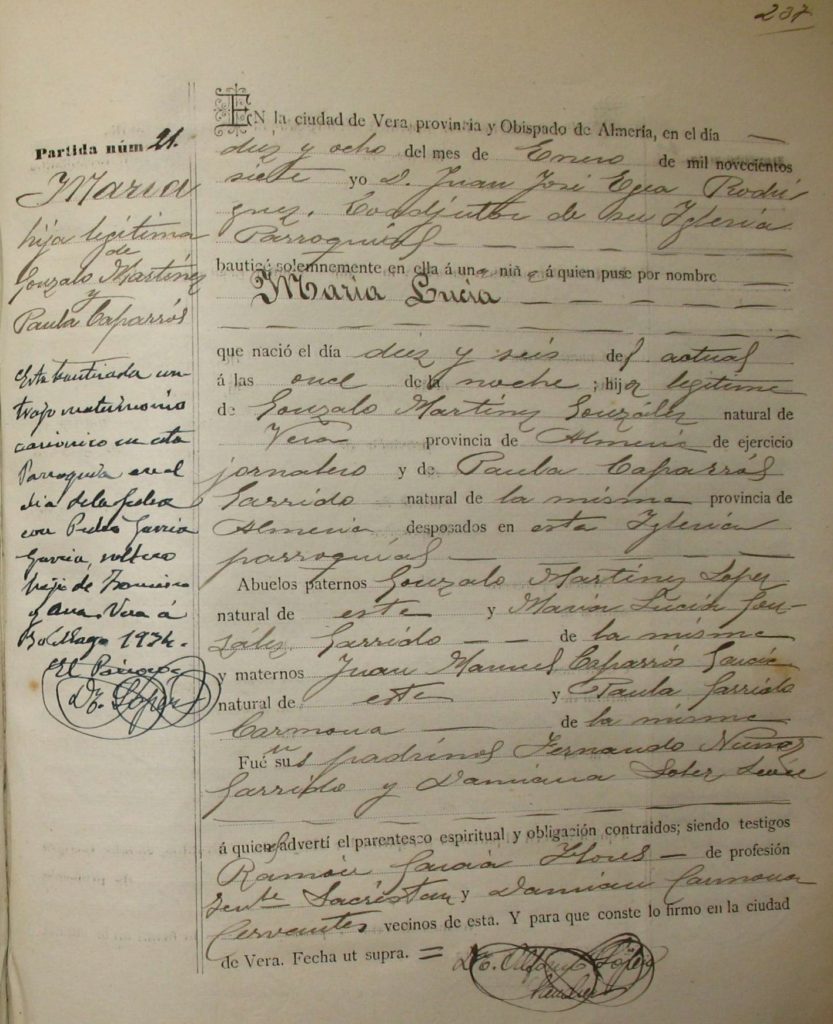 237
Partida núm 21.
MARIA
hija legítima
de
Gonzalo Martínez
y
Paula Caparrós
Esta bautizada con-
trajo matrimonio
canónico en esta
Parroquia en el
día de la fecha
con Pedro García
García, soltero
hijo de Francisco
y Ana. Vera á
1934.
El Párroco
López
EN la ciudad de Vera provincia y Obispado de Almería, en el día —
diez y ocho del mes de Enero de mil novecientos
siete yo D. Juan José Egea Rodrí
guez, Coadjutor de su Iglesia
Parroquial — — — —
bauticé solemnemente en ella á una niña á quien puse por nombre
Maria Lucia — — — —
que nació el día diez y seis del actual
á las once de la noche; hija legítima
de Gonzalo Martínez González natural de
Vera provincia de Almería de ejercicio
jornalero y de Paula Caparrós
Garrido natural de la misma provincia de
Almería desposados en esta Iglesia
parroquial —
Abuelos paternos Gonzalo Martínez López
natural de este y María Lucía Gon-
zález Garrido — — de la misma
y maternos Juan Manuel Caparrós García
natural de este y Paula Garrido
Carmona — de la misma
Fueron sus padrinos Fernando Nuñez
Garrido y Damiana Soler
á quienes advertí el parentesco espiritual y obligación contraidos; siendo testigos
Ramón García Flores — de profesión
Sacristan y Damian Carmona
Cervantes vecinos de esta. Y para que conste lo firmo en la ciudad
de Vera. Fecha ut supra. =
López